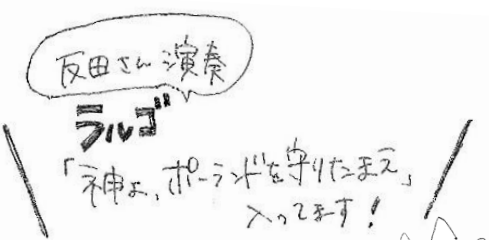 反田さん演奏
ラルゴ
「神よ、ポーランドを守りたまえ」
入ってます！